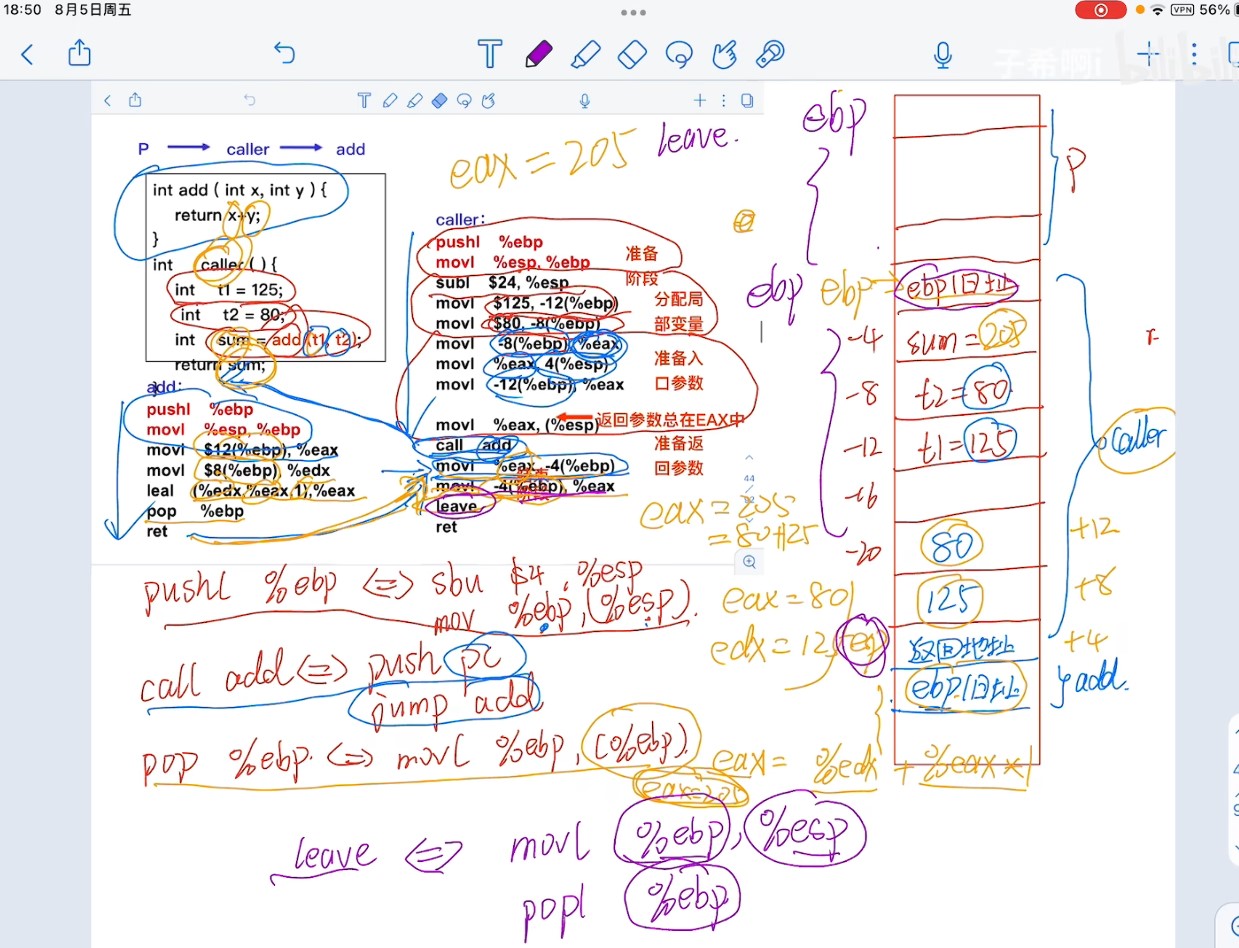 18:50 8月5日周五
VPN 56%
子希啊i bilibili
P caller add
eax = 205
leave.
ebp
P
int add ( int x, int y ) {
return x+y;
}
int caller ( ) {
int t1 = 125;
int t2 = 80;
int sum = add (t1, t2);
return sum;
}
caller:
pushl %ebp
movl %esp, %ebp
准备
阶段
subl $24, %esp
movl $125, -12(%ebp)
movl $80, -8(%ebp)
分配局
部变量
movl -8(%ebp), %eax
movl %eax, 4(%esp)
movl -12(%ebp), %eax
准备入
口参数
movl %eax, (%esp)
返回参数总在EAX中
call add
movl %eax, -4(%ebp)
准备返
回参数
movl -4(%ebp), %eax
leave
ret
add:
pushl %ebp
movl %esp, %ebp
movl $12(%ebp), %eax
movl $8(%ebp), %edx
leal (%edx,%eax,1),%eax
pop %ebp
ret
44
ebp ebp ebp旧址
-4 sum=205
-8 t2=80
-12 t1=125
caller
-16
-20 80 +12
125 +8
返回地址 +4
ebp旧址 add.
eax = 205
= 80+125
eax = 80
edx = 125
pushl %ebp <=> sbu $4, %esp
mov %ebp, (%esp).
call add <=> push pc
jump add
pop %ebp. <=> movl %ebp, (%ebp).
eax=205
eax = %edx + %eax×1
leave <=> movl %ebp, %esp
popl %ebp